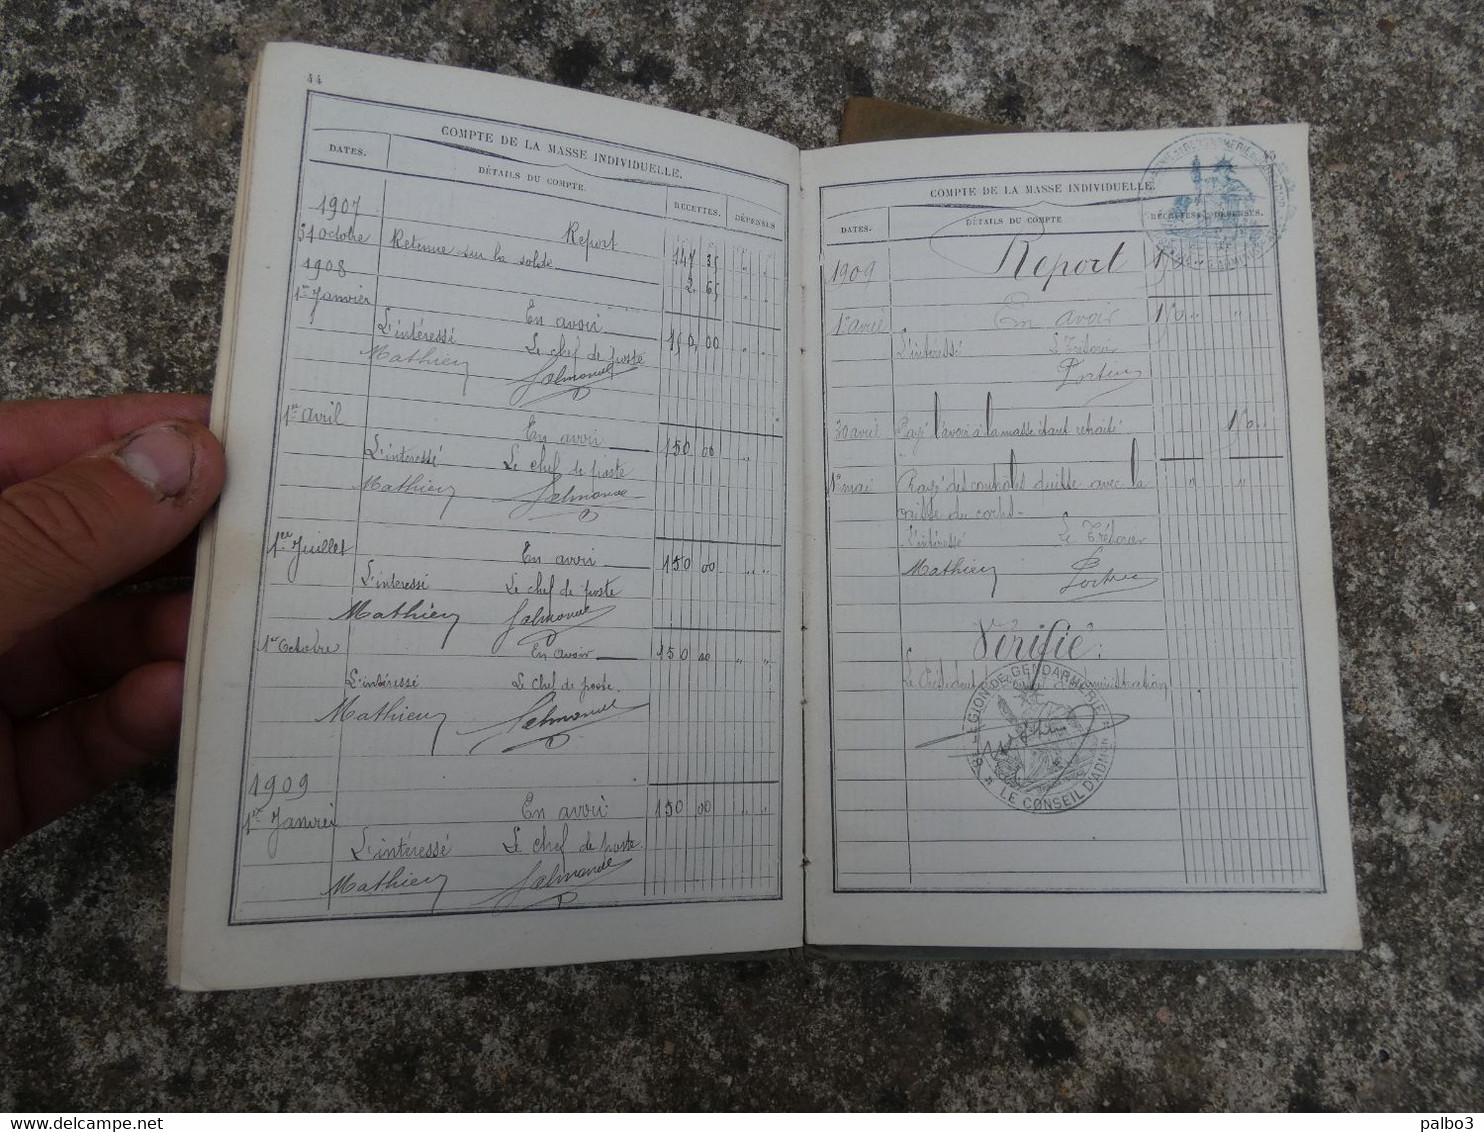 44
COMPTE DE LA MASSE INDIVIDUELLE.
DATES.
DÉTAILS DU COMPTE.
RECETTES.
DÉPENSES
1907
Report
147 35
31 octobre
Retenue sur la solde
2 65
1908
1er Janvier
En avoir
150,00
L'intéressé
Le chef de poste
Mathieu
1er avril
En avoir
150 00
L'intéressé
Le chef de poste
Mathieu
1er Juillet
En avoir
150 00
L'intéressé
Le chef de poste
Mathieu
1er Octobre
En avoir
150 00
L'intéressé
Le chef de poste.
Mathieu
1909
1er Janvier
En avoir
150 00
L'intéressé
Le chef de poste
Mathieu
COMPTE DE LA MASSE INDIVIDUELLE.
DATES.
DÉTAILS DU COMPTE
RECETTES.
DÉPENSES.
1909
Report
1er avril
En avoir
150
L'intéressé
Le Trésorier
30 avril
Payé l'avoir à la masse étant retraité
150
1er mai
Rayé des contrôles quitte avec la
caisse du corps
L'intéressé
Le Trésorier
Mathieu
Vérifié:
Le Président d'administration
LÉGION DE GENDARMERIE
LE CONSEIL D'ADMON
palbo3